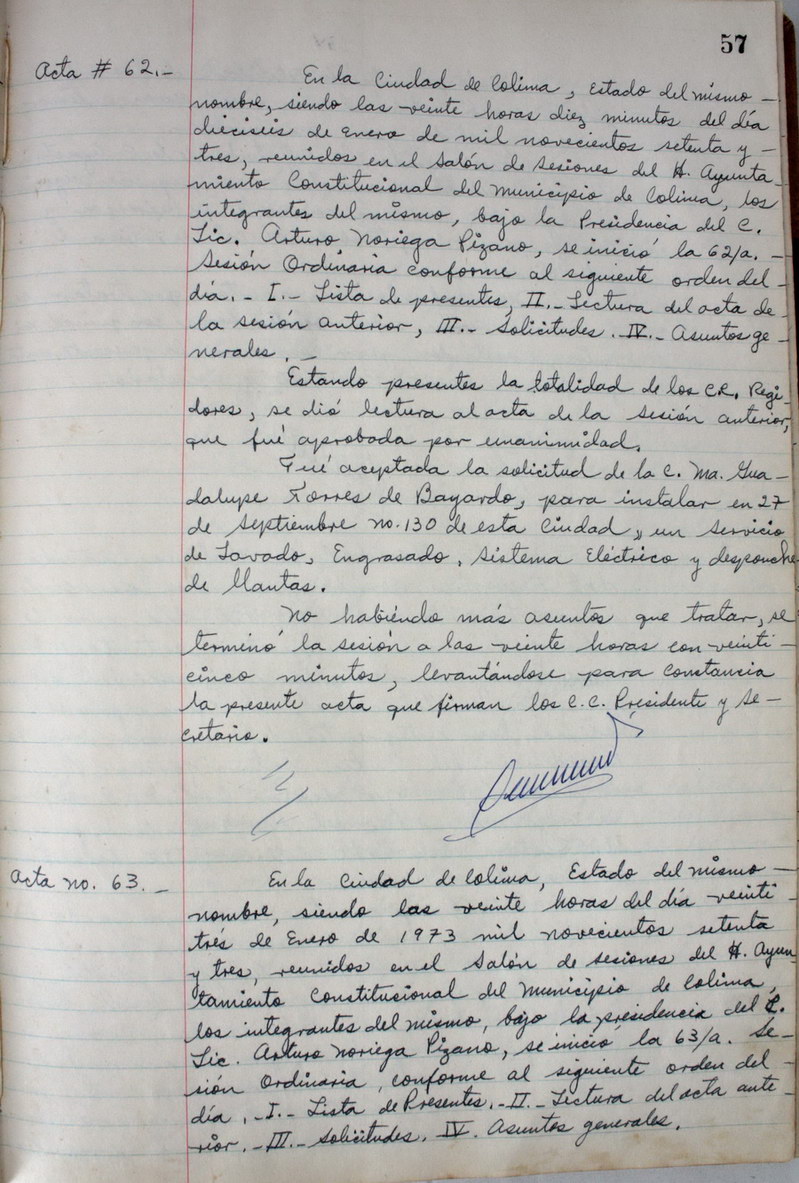 57
Acta # 62.-
En la Ciudad de Colima, Estado del mismo -
nombre, siendo las veinte horas diez minutos del día
dieciseis de Enero de mil novecientos setenta y -
tres, reunidos en el Salón de Sesiones del H. Ayunta-
miento Constitucional del Municipio de Colima, los
integrantes del mismo, bajo la Presidencia del C.
Lic. Arturo Noriega Pizano, se inició la 62/a. -
Sesión Ordinaria conforme al siguiente orden del -
día. - I.- Lista de presentes, II.- Lectura del acta de -
la sesión anterior, III.- Solicitudes. IV.- Asuntos ge -
nerales. -
Estando presentes la totalidad de los C.R. Regi-
dores, se dió lectura al acta de la sesión anterior,
que fué aprobada por unanimidad.
Fué aceptada la solicitud de la C. Ma. Gua -
dalupe Torres de Bayardo, para instalar en 27
de Septiembre no. 130 de esta Ciudad, un servicio
de Lavado, Engrasado, Sistema Eléctrico y desponche
de llantas.
No habiéndo más asuntos que tratar, se
terminó la sesión a las veinte horas con veinti -
cinco minutos, levantándose para constancia
la presente acta que firman los C.C. Presidente y Se -
cretario.
Acta no. 63. -
En la Ciudad de Colima, Estado del mismo -
nombre, siendo las veinte horas del día veinti -
trés de Enero de 1973 mil novecientos setenta
y tres, reunidos en el Salón de sesiones del H. Ayun-
tamiento Constitucional del Municipio de Colima,
los integrantes del mismo, bajo la presidencia del C.
Lic. Arturo Noriega Pizano, se inició la 63/a. Se-
sión Ordinaria, conforme al siguiente orden del -
día. - I.- Lista de Presentes. - II.- Lectura del acta ante -
rior. - III.- Solicitudes. IV. Asuntos generales.